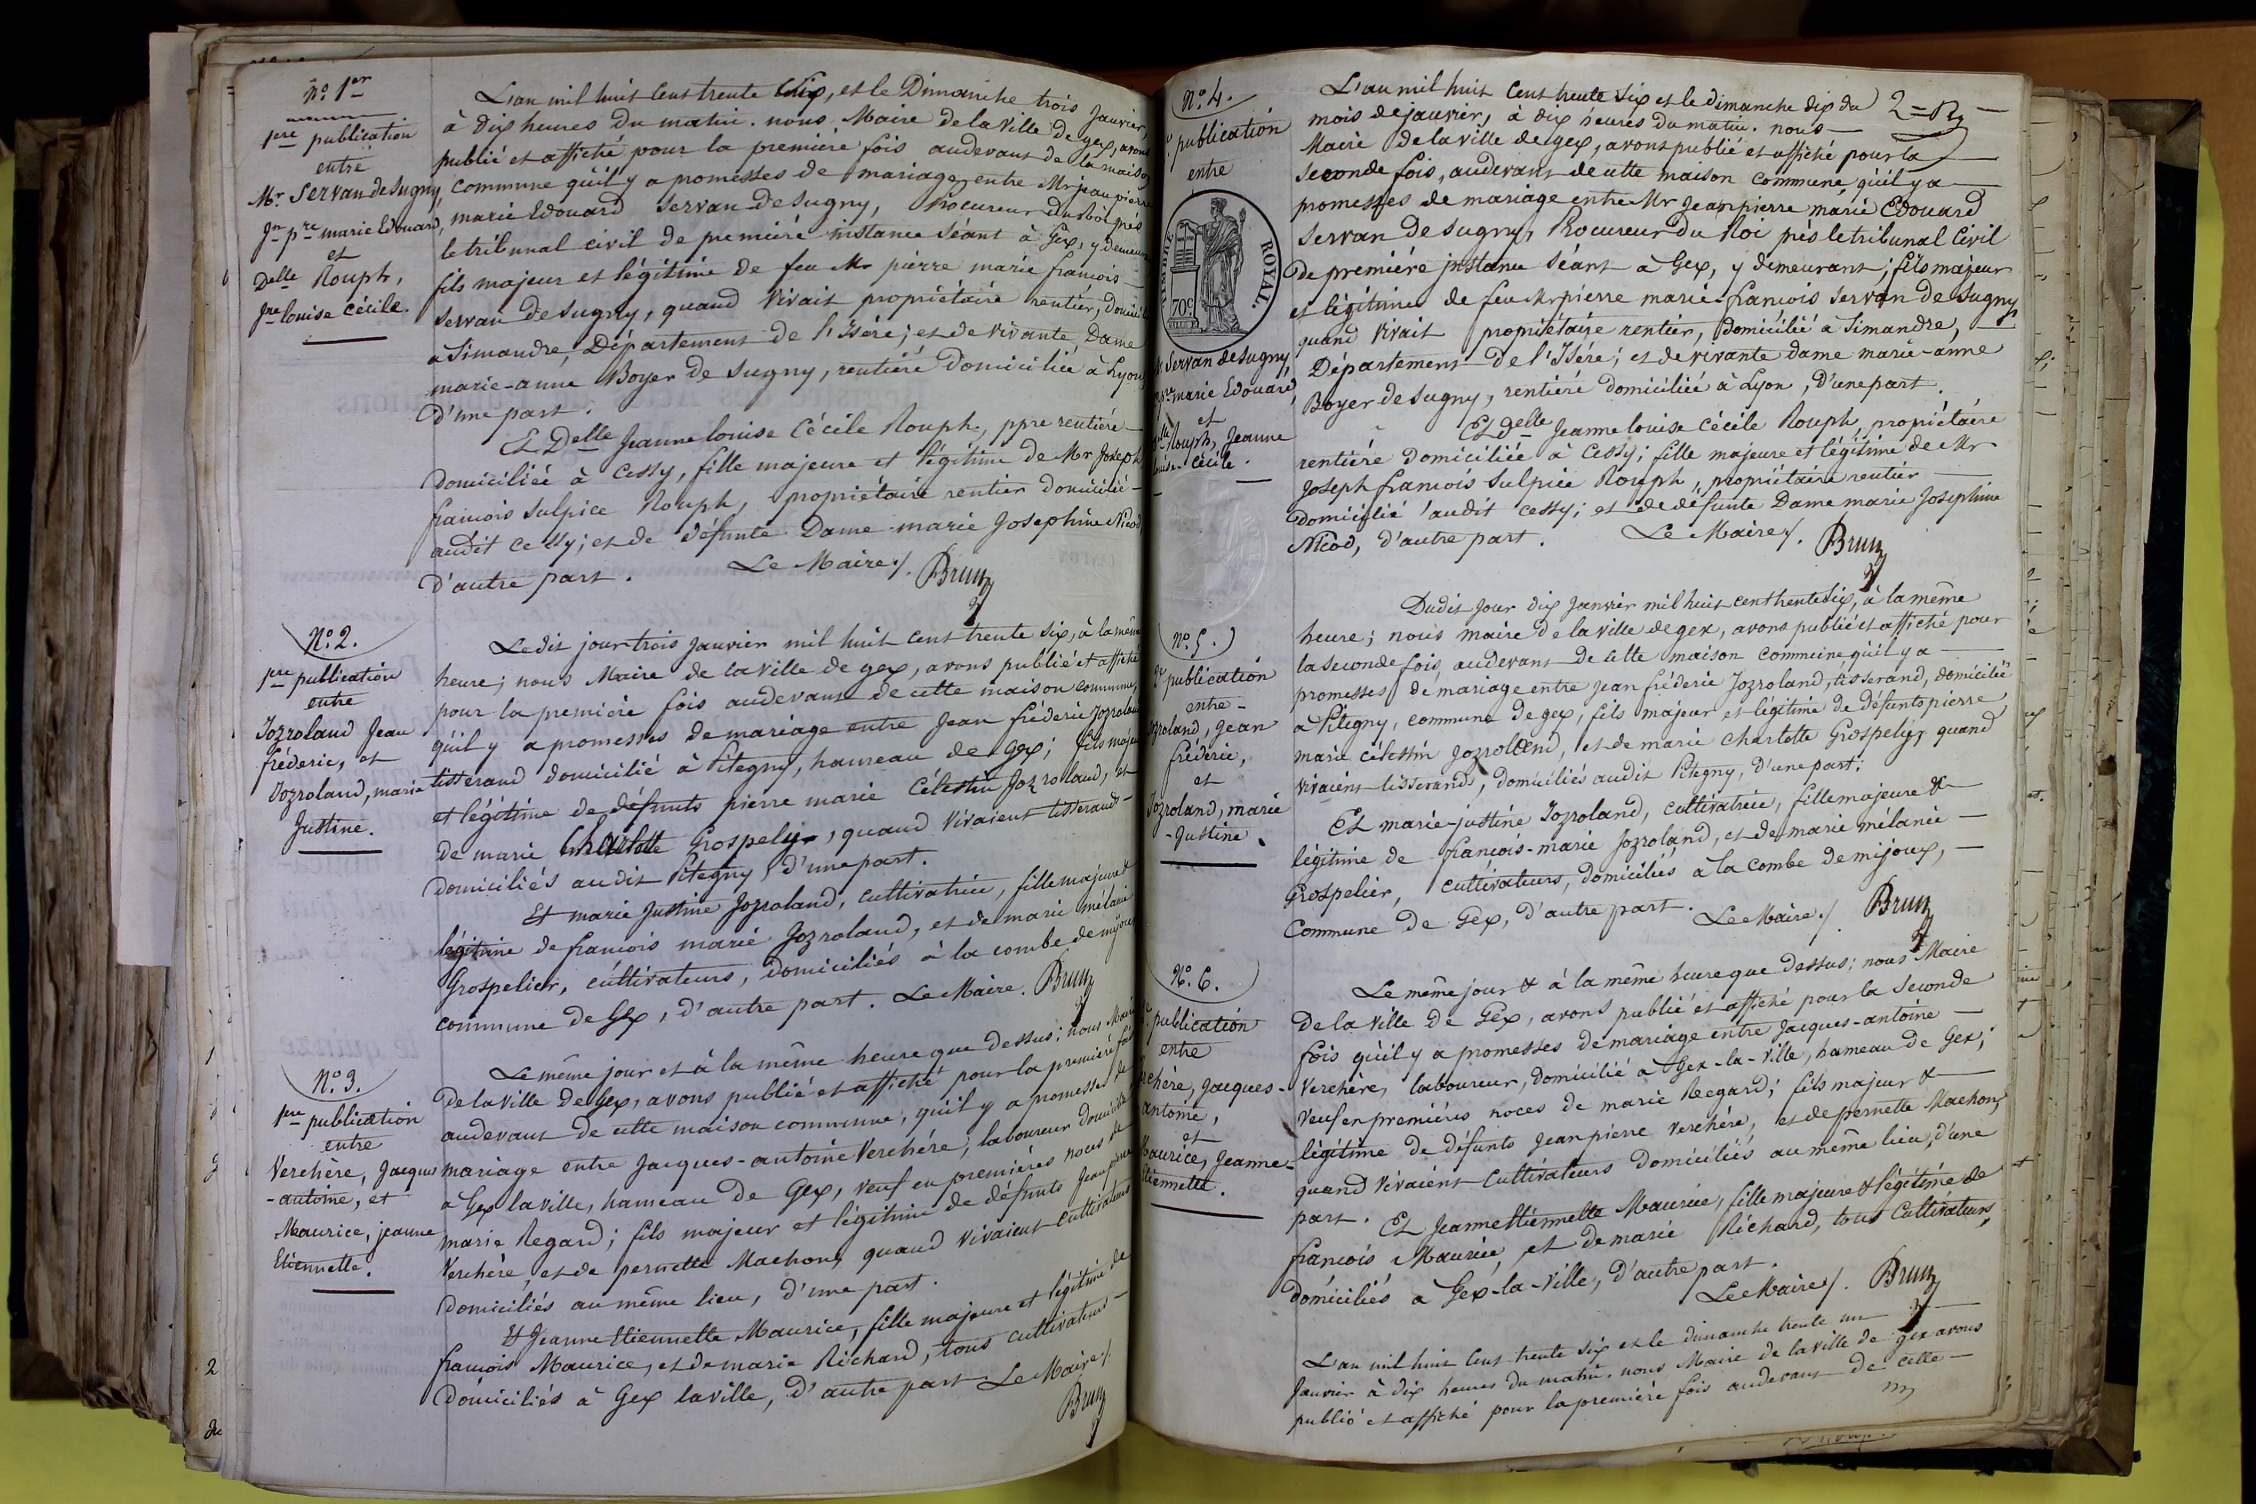 N.o 1er
1ere publication
entre
Mr. Servan de Sugny,
Jn pre marie Edouard,
et
Delle Rouph,
Jne louise Cécile.
L'an mil huit Cent trente Six, et le Dimanche trois Janvier,
à dix heures du matin. nous Maire de la Ville de gex, avons
publié et affiché pour la première fois audevant de la maison
commune qu'il y a promesses de mariage entre Mr jean pierre
marie Edouard Servan de Sugny, Procureur du Roi près
le tribunal civil de première instance Séant à Gex, y demeurant
fils majeur et légitime de feu Mr pierre marie francois
Servan de Sugny, quand vivait propriétaire rentier, domicilié
à Simandre, Département de l'Isère; et de vivante Dame
marie-anne Boyer de Sugny, rentière domiciliée à Lyon
d'une part.
Et Delle Jeanne louise Cécile Rouph, ppre rentière
domiciliée à Cessy, fille majeure et légitime de Mr Joseph
francois Sulpice Rouph, propriétaire rentier domicilié
audit Cessy; et de défunte Dame marie Josephine Nicod,
d'autre part. Le Maire /. Brun
N.o 2.
1ere publication
entre
Jozroland Jean
fréderic, et
Jozroland, marie
Justine.
Ledit jour trois Janvier mil huit cent trente Six, à la même
heure; nous Maire de la ville de gex, avons publié et affiché
pour la première fois audevant de cette maison commune,
qu'il y a promesses de mariage entre Jean fréderic Jozroland
tisserand domicilié à Pitegny, hameau de Gex; fils majeur
et légitime de défunts pierre marie Célestin Jozroland, et
de marie Charlotte Grospelier, quand vivaient tisserands
domiciliés audit Pitegny, d'une part.
Et marie Justine Jozroland, cultivatrice, fille majeure &
légitime de francois marie Jozroland, et de marie mélanie
Grospelier, cultivateurs, domiciliés à la combe de mijoux
commune de Gex, d'autre part. Le Maire. Brun
N.o 3.
1ere publication
entre
Verchère, Jacques
-antoine, et
Maurice, jeanne
Etiennette.
Le même jour et à la même heure que dessus; nous Maire
de la ville de Gex, avons publié et affiché pour la première fois
audevant de cette maison commune, qu'il y a promesses de
mariage entre Jacques-antoine Verchère, laboureur domicilié
à Gex la ville, hameau de Gex, veuf en premières noces de
marie Regard; fils majeur et légitime de défunts Jean pierre
Verchère, et de pernette Machon, quand vivaient cultivateurs
domiciliés au même lieu, d'une part.
Et Jeanne Etiennette Maurice, fille majeure et légitime de
francois Maurice, et de marie Richard, tous cultivateurs
domiciliés à Gex la ville, d'autre part. Le Maire /.
Brun
N.o 4.
publication
entre
TIMBRE ROYAL.
70c.
Servan de Sugny,
marie Edouard,
et
Rouph, Jeanne
louise Cécile.
L'an mil huit Cent trente Six et le dimanche dix du
mois de janvier, à dix heures du matin. nous
Maire de la ville de gex, avons publié et affiché pour la
Seconde fois, audevant de cette maison commune qu'il y a
promesses de mariage entre Mr Jean pierre marie Edouard
Servan de Sugny, Procureur du Roi près le tribunal Civil
de première instance Séant à Gex, y demeurant; fils majeur
et légitime de feu Mr pierre marie-francois Servan de Sugny
quand vivait propriétaire rentier, domicilié à Simandre,
Département de l'Isère; et de vivante dame marie-anne
Boyer de Sugny, rentière domiciliée à Lyon, d'une part.
Et Delle Jeanne louise Cécile Rouph, propriétaire
rentière domiciliée à Cessy; fille majeure et légitime de Mr
Joseph francois Sulpice Rouph, propriétaire rentier
domicilié audit Cessy; et de défunte Dame marie Josephine
Nicod, d'autre part. Le Maire /. Brun
N.o 5.
publication
entre
Jozroland, Jean
fréderic,
et
Jozroland, marie
-Justine.
Dudit Jour dix Janvier mil huit cent trente Six, à la même
heure; nous maire de la ville de gex, avons publié et affiché pour
la seconde fois, audevant de cette maison commune qu'il y a
promesses de mariage entre jean fréderic Jozroland, tisserand, domicilié
à Pitegny, commune de gex, fils majeur et légitime de défunts pierre
marie célestin Jozroland, et de marie Charlotte Grospelier quand
vivaient tisserands, domiciliés audit Pitegny, d'une part;
Et marie-justine Jozroland, cultivatrice, fille majeure &
légitime de francois-marie Jozroland, et de marie mélanie
Grospelier, cultivateurs, domiciliés à la combe de mijoux,
Commune de Gex, d'autre part. Le Maire /. Brun
N.o 6.
publication
entre
Verchère, Jacques-
antoine,
et
Maurice, Jeanne-
Etiennette.
Le même jour & à la même heure que dessus; nous Maire
de la ville de Gex, avons publié et affiché pour la Seconde
fois qu'il y a promesses de mariage entre Jacques-antoine
Verchère, laboureur, domicilié à Gex-la-ville, hameau de Gex;
veuf en premières noces de marie Regard; fils majeur &
légitime de défunts Jean pierre Verchère, et de pernette Machon,
quand vivaient Cultivateurs domiciliés au même lieu, d'une
part. Et Jeanne Etiennette Maurice, fille majeure & légitime de
francois Maurice, et de marie Richard, tous Cultivateurs,
domiciliés à Gex-la-ville, d'autre part.
Le Maire /. Brun
L'an mil huit Cent trente Six et le dimanche trente un
Janvier à dix heures du matin. nous Maire de la ville de gex avons
publié et affiché pour la première fois audevant de cette